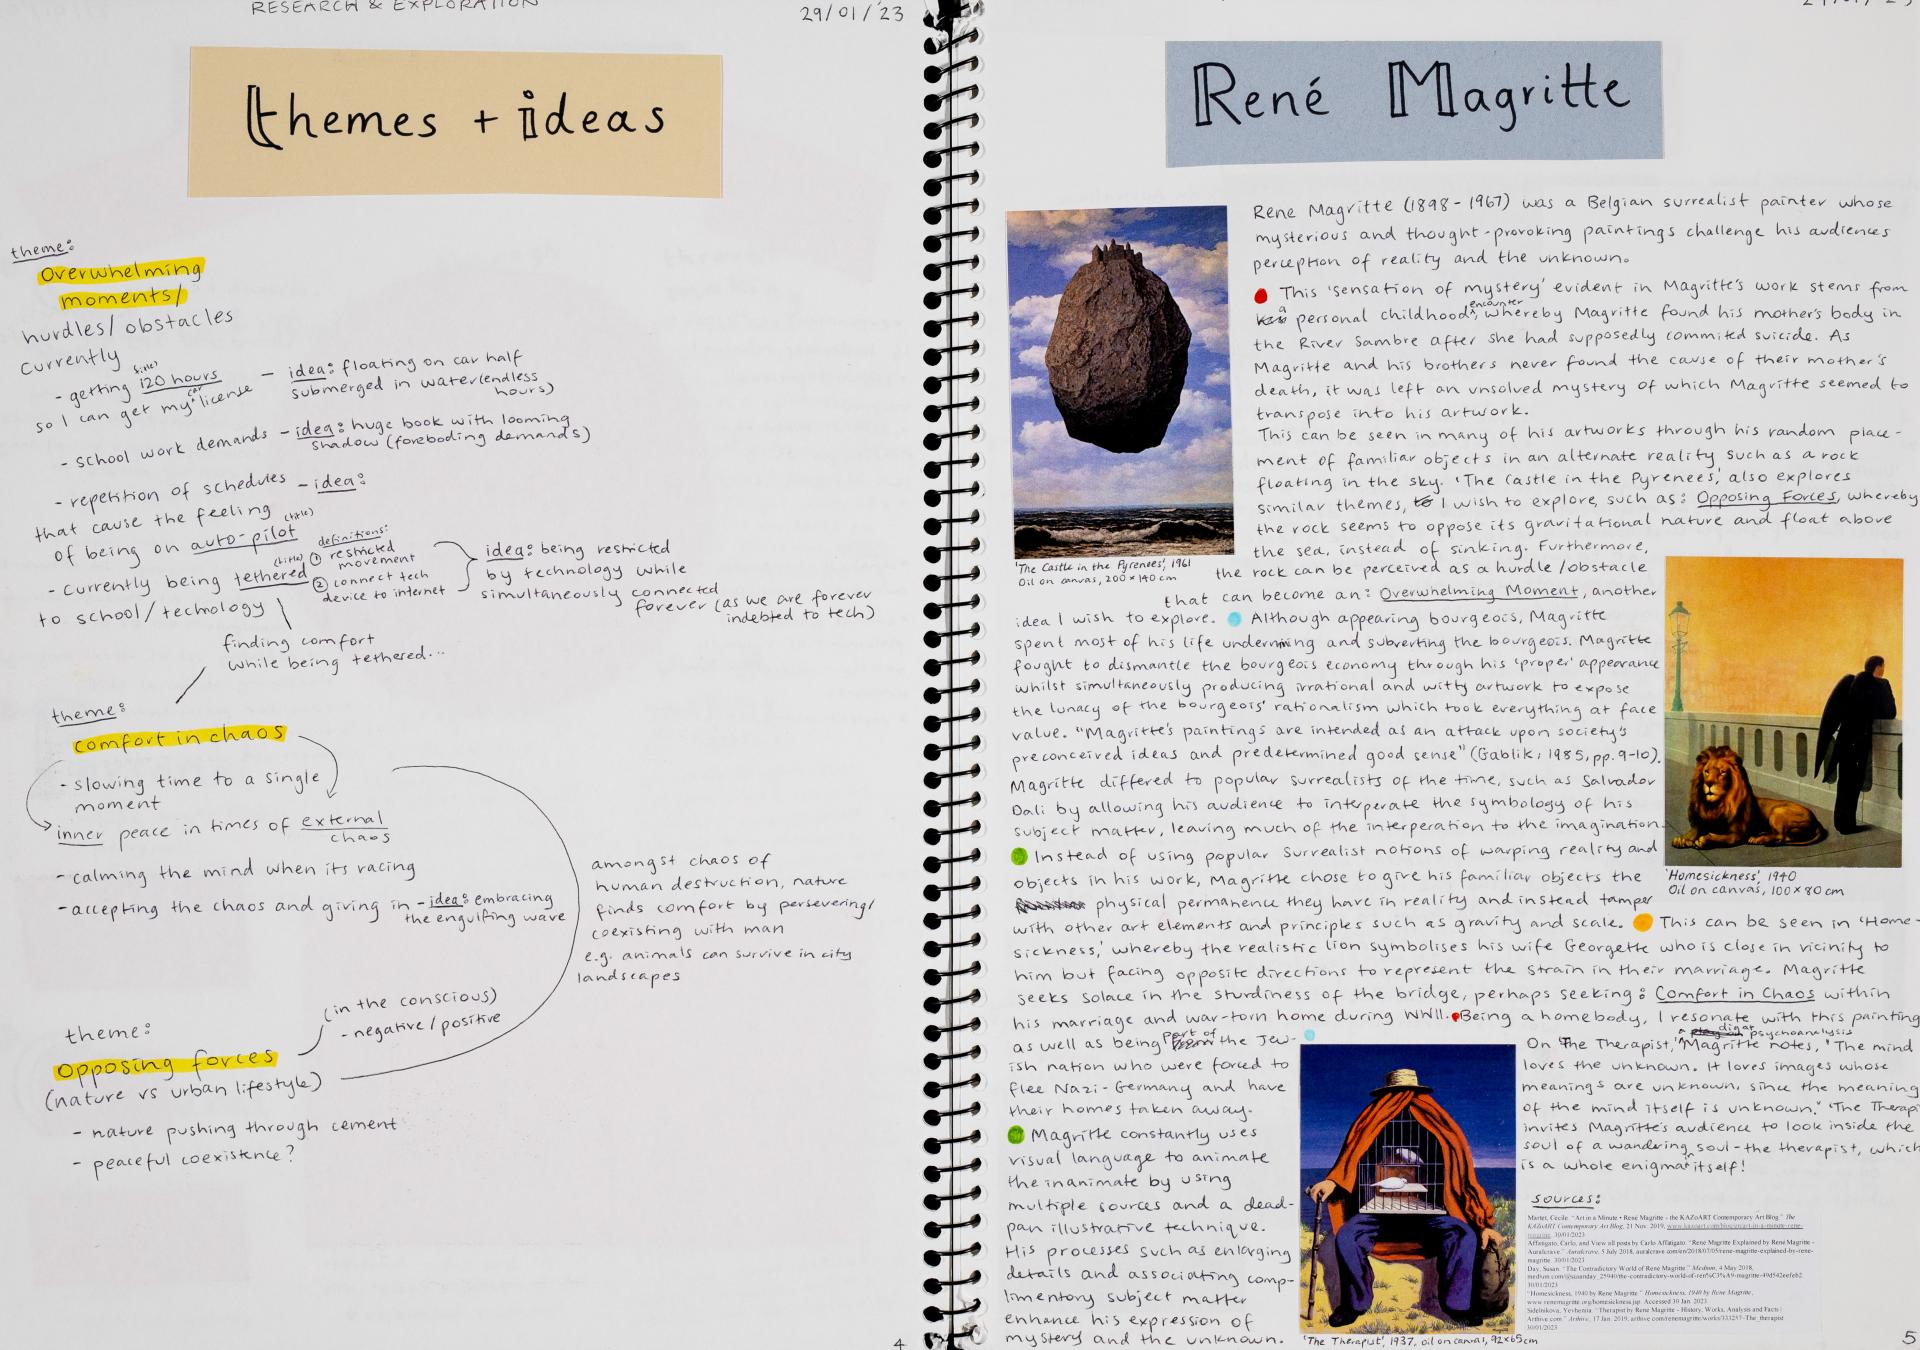 RESEARCH & EXPLORATION
29/01/'23
themes + ideas
theme:
Overwhelming
moments/
hurdles/obstacles
currently
(title)
- getting 120 hours
so I can get my car license
- idea: floating on car half
submerged in water (endless
hours)
- school work demands - idea: huge book with looming
shadow (foreboding demands)
- repetition of schedules - idea:
that cause the feeling
(title)
of being on auto-pilot
- currently being tethered
(title)
to school/technology
definitions:
① restricted
movement
② connect tech
device to internet
idea: being restricted
by technology while
simultaneously connected
forever (as we are forever
indebted to tech)
finding comfort
while being tethered...
theme:
comfort in chaos
- slowing time to a single
moment
inner peace in times of external
chaos
- calming the mind when its racing
- accepting the chaos and giving in - idea: embracing
the engulfing wave
amongst chaos of
human destruction, nature
finds comfort by persevering/
coexisting with man
e.g. animals can survive in city
landscapes
theme:
(in the conscious)
- negative/positive
opposing forces
(nature vs urban lifestyle)
- nature pushing through cement
- peaceful coexistence?
4
René Magritte
Rene Magritte (1898-1967) was a Belgian surrealist painter whose
mysterious and thought-provoking paintings challenge his audiences
perception of reality and the unknown.
This 'sensation of mystery' evident in Magritte's work stems from
a personal childhood encounter, whereby Magritte found his mother's body in
the River Sambre after she had supposedly commited suicide. As
Magritte and his brothers never found the cause of their mother's
death, it was left an unsolved mystery of which Magritte seemed to
transpose into his artwork.
This can be seen in many of his artworks through his random place-
ment of familiar objects in an alternate reality such as a rock
floating in the sky. 'The Castle in the Pyrenees,' also explores
similar themes, I wish to explore, such as: Opposing Forces, whereby
the rock seems to oppose its gravitational nature and float above
the sea, instead of sinking. Furthermore,
'The Castle in the Pyrenees', 1961
Oil on canvas, 200×140cm
the rock can be perceived as a hurdle/obstacle
that can become an: Overwhelming Moment, another
idea I wish to explore. Although appearing bourgeois, Magritte
spent most of his life undermining and subverting the bourgeois. Magritte
fought to dismantle the bourgeois economy through his 'proper' appearance
whilst simultaneously producing irrational and witty artwork to expose
the lunacy of the bourgeois' rationalism which took everything at face
value. "Magritte's paintings are intended as an attack upon society's
preconceived ideas and predetermined good sense" (Gablik, 1985, pp. 9-10).
Magritte differed to popular surrealists of the time, such as Salvador
Dali by allowing his audience to interperate the symbology of his
subject matter, leaving much of the interperation to the imagination.
Instead of using popular Surrealist notions of warping reality and
objects in his work, Magritte chose to give his familiar objects the
physical permanence they have in reality and instead tamper
with other art elements and principles such as gravity and scale. This can be seen in 'Home-
'Homesickness', 1940
Oil on canvas, 100×80cm
sickness,' whereby the realistic lion symbolises his wife Georgette who is close in vicinity to
him but facing opposite directions to represent the strain in their marriage. Magritte
seeks solace in the sturdiness of the bridge, perhaps seeking: Comfort in Chaos within
his marriage and war-torn home during WWII. Being a homebody, I resonate with this painting
as well as being part of the Jew-
ish nation who were forced to
flee Nazi-Germany and have
their homes taken away.
Magritte constantly uses
visual language to animate
the inanimate by using
multiple sources and a dead-
pan illustrative technique.
His processes such as enlarging
details and associating comp-
limentory subject matter
enhance his expression of
mystery and the unknown.
On 'The Therapist,' a dig at psychoanalysis Magritte notes, "The mind
loves the unknown. It loves images whose
meanings are unknown, since the meaning
of the mind itself is unknown." 'The Therapi
invites Magritte's audience to look inside the
soul of a wandering soul - the therapist, which
is a whole enigma itself!
sources:
Martet, Cecile. "Art in a Minute • René Magritte - the KAZoART Contemporary Art Blog." The
KAZoART Contemporary Art Blog, 21 Nov. 2019, www.kazoart.com/blog/en/art-in-a-minute-rene-
magritte. 30/01/2023
Affatigato, Carlo, and View all posts by Carlo Affatigato. "René Magritte Explained by René Magritte -
Auralcrave." Auralcrave, 5 July 2018, auralcrave.com/en/2018/07/05/rene-magritte-explained-by-rene-
magritte. 30/01/2023
Day, Susan. "The Contradictory World of René Magritte." Medium, 4 May 2018,
30/01/2023
"Homesickness, 1940 by Rene Magritte." Homesickness, 1940 by Rene Magritte,
www.renemagritte.org/homesickness.jsp. Accessed 30 Jan. 2023.
Sidelnikova, Yevheniia. "Therapist by Rene Magritte - History, Works, Analysis and Facts |
Arthive.com." Arthive, 17 Jan. 2019, arthive.com/renemagritte/works/333257~The_therapist
30/01/2023
'The Therapist', 1937, oil on canvas, 92×65cm
5